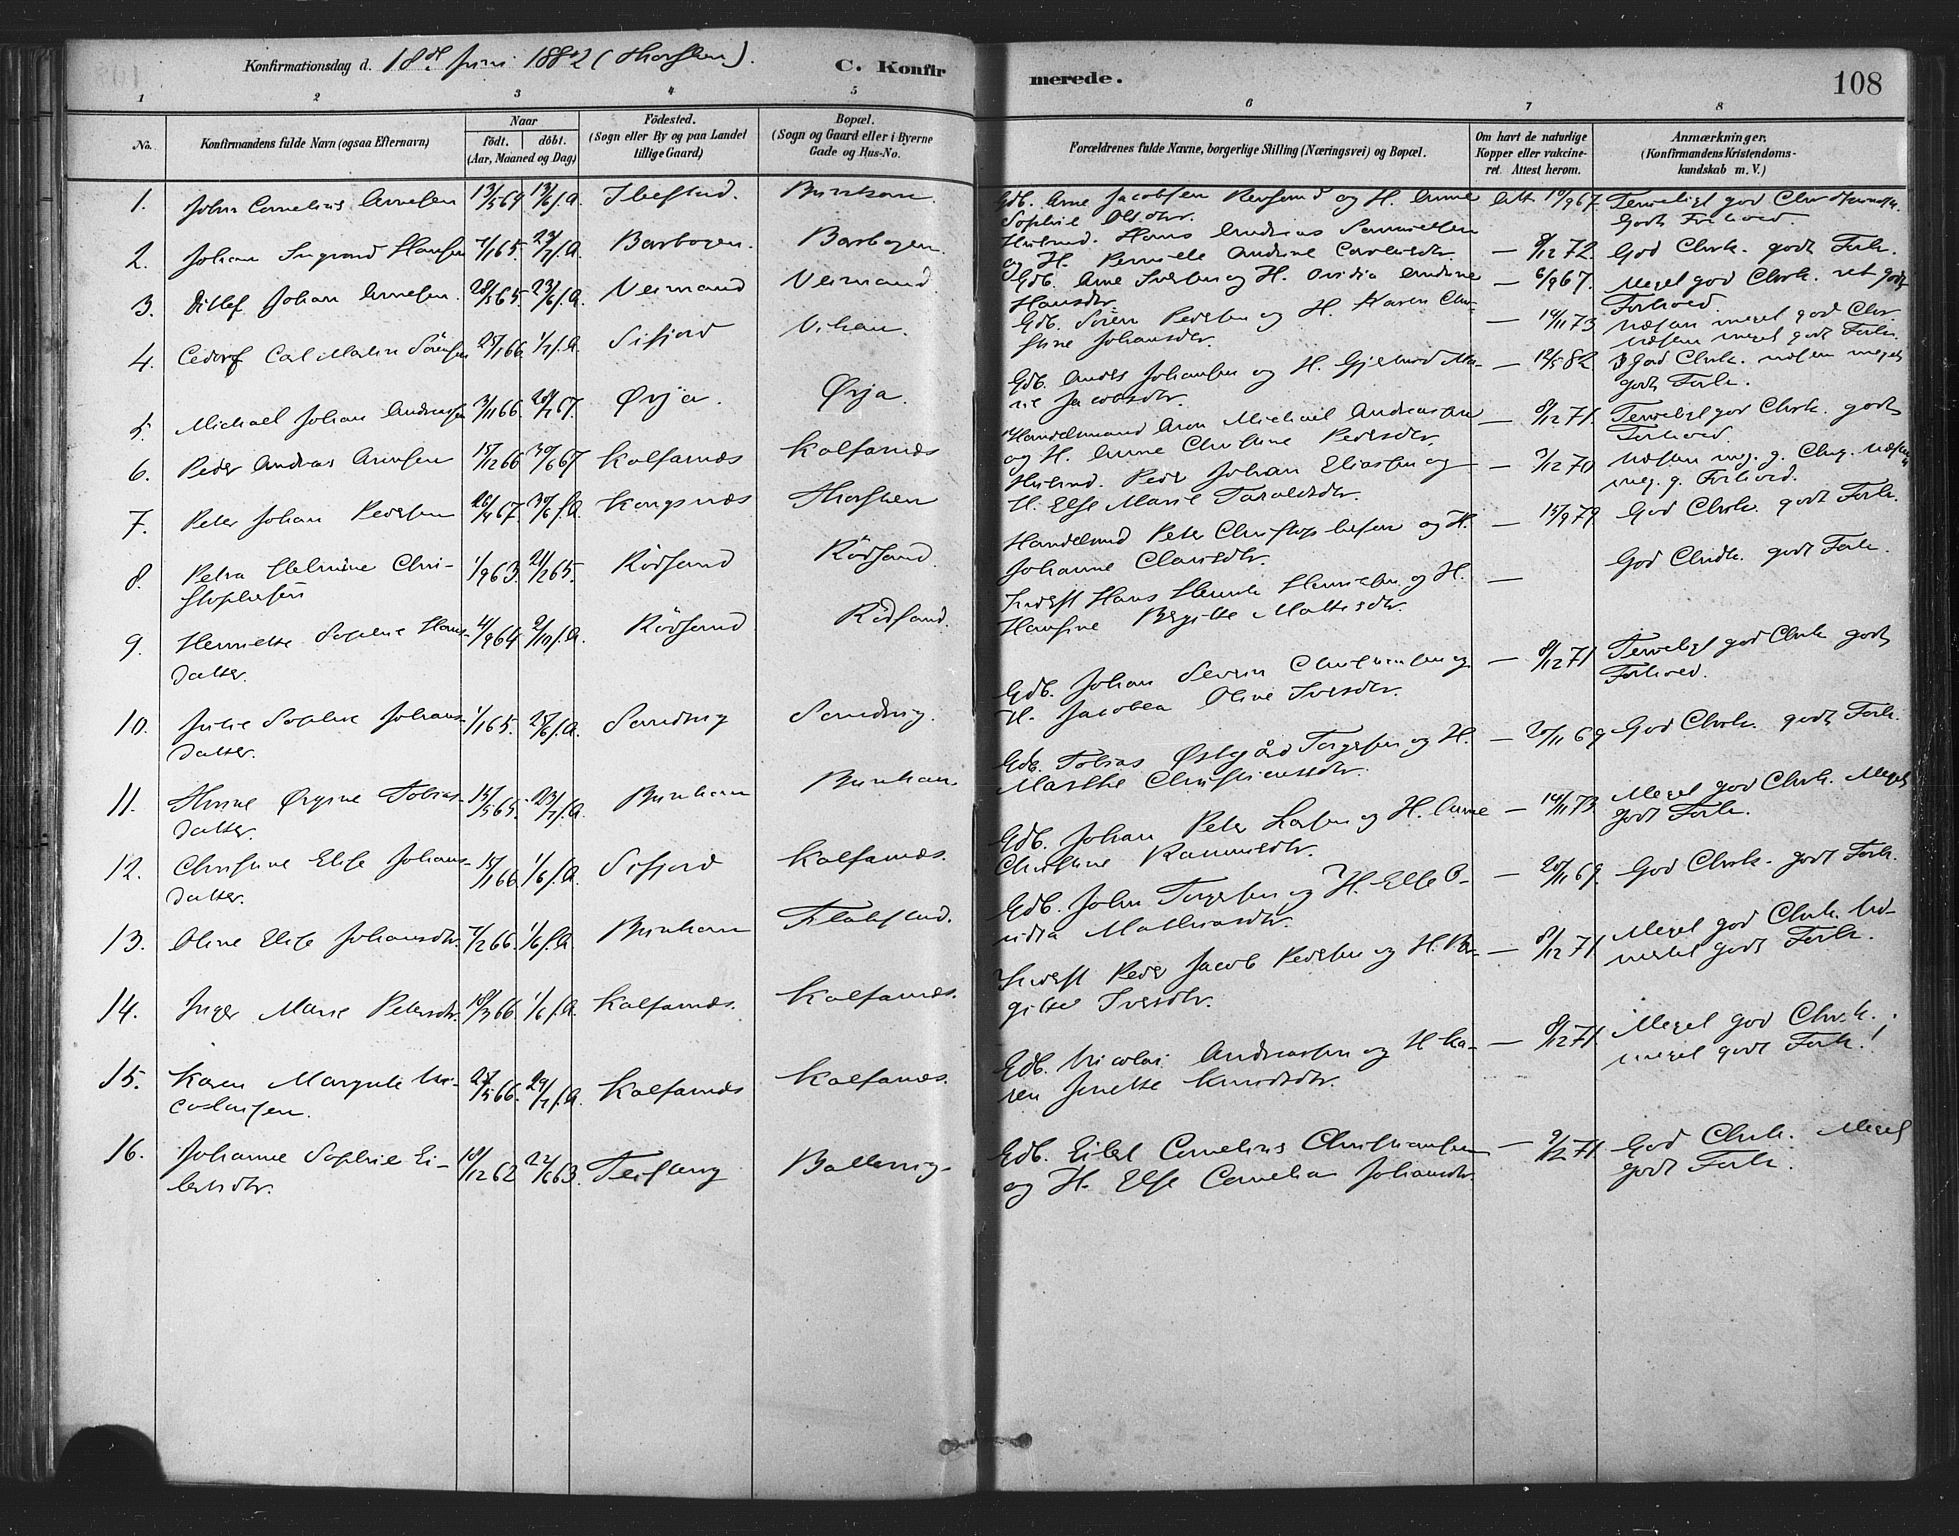 Konfirmationsdag d. 18de Juni 1882 (Thorsken).
C. Konfirmerede.
108
1 2 3 4 5 6 7 8
No.
Konfirmandens fulde Navn (ogsaa Efternavn)
Naar
födt. döbt.
(Aar, Maaned og Dag)
Födested.
(Sogn eller By og paa Landet
tillige Gaard)
Bopæl.
(Sogn og Gaard eller i Byerne
Gade og Hus-No.
Forældrenes fulde Navne, borgerlige Stilling (Næringsvei) og Bopæl.
Om havt de naturlige
Kopper eller vakcineret.
Attest herom.
Anmærkninger.
(Konfirmandens Kristendomskundskab
m. V.)
1. Johan Cornelius Arnesen 13/5 69 13/6 s.A. Ibestad.
Gdb. Arne Jacobsen og H. Anne
Sophie Olsdtr.
Att 10/9 67 Temmeligt god Chr.
Godt Forhold
2. Johan Hansen /1 65. s.A. Barbogen. Barbogen
Husmd. Hans Andreas
og H. Pernille Andrine
— 8/12 72. God Chrk. godt Forh.
3. Ditlef Johan Arnesen. 28/3 65. 23/6 s.A. Veimand Veimand
Gdb. Arne Iversen og H. Ovidia Andrine
Hansdtr.
— 6/9 67. Meget god Chrk. ret godt
Forhold
4. Carl Martin Sörensen 25/1 66. 1/7 s.A. Sifjord
Gdb. Sören Pedersen og H. Karen Christine
Johansdtr.
— 14/11 73 Næsten meget god Chr.
næsten meget godt Forh.
5. Michael Johan Andersen 3/11 66. 20/1 67. Örja. Örja.
Gdb. Anders Johansen og H. Gjertrud Marie
Jacobsdtr.
— 12/5 82 God Chrk. næsten meget
godt Forh.
6. Peder Andreas Aronsen 15/12 66 30/6 67 Kalfarnæs Kalfarnæs
Handelsmand Aron Michael Andreassen
og H. Anne Christine Pedersdtr.
— 8/12 71. Temmeligt god Chrk. godt
Forhold.
7. Peter Johan Pedersen 26/4 67. 30/6 s.A. Kongsnæs Thorsken
Husmd. Peder Johan Eliassen og
H. Else Marie Taraldsdtr.
— 3/12 70 Næsten meg. g. Chr.
meg. g. Forhold.
8. Petra Helmine Christophersen
1/9 63. 21/2 65. Rödsand Rödsand.
Handelsmd Peter Christophersen og H.
Johanne Clausdtr.
— 15/9 79 God Chrk. godt Forh.
9. Henriette Sophie Hansdatter.
4/9 64. 2/10 s.A. Rödsand Rödsand.
Inderst Hans Henrik Henriksen og H.
Hansine Birgitte Mattisdtr.
— God Chrdk. godt Forh.
10. Julie Sophie Johansdatter.
1/1 65. 25/6 s.A. Sandvig Sandvig.
Gdb. Johan Severin Christiansen og
H. Jacobea Oline Iversdtr.
— 8/12 71 Temmeligt god Chrk godt
Forhold.
11. Tobiasdatter.
15/5 65. 23/7 s.A. Bunkan Bunkan.
Gdb. Tobias Östgård Torgersen og H.
Marthe Christiansdtr.
— 20/11 69 God Chrk. godt Forh.
12. Christine Elise Johansdatter.
15/1 66. 1/6 s.A. Sifjord Kalfarnæs.
Gdb. Johan Peter Larsen og H. Anne
Christine
— 14/11 73 Meget god Chrk. Meget
godt Forh.
13. Oline Elise Johansdtr. 7/2 66. 1/6 s.A. Bunkan Flakstad.
Gdb. John Torgersen og H. Else
Mathiasdtr.
— 20/11 69. God Chrk. godt Forh.
14. Inger Marie Petersdtr. 10/3 66. 1/6 s.A. Kalfarnæs. Kalfarnæs.
Inderst Peder Jacob Pedersen og H. Birgitte
Iversdtr.
— 8/12 71 Meget god Chrk. Udmerket
godt Forh.
15. Karen Margrete Nicolaisen.
25/5 66. 29/7 s.A. Kalfarnæs Kalfarnæs.
Gdb. Nicolai Andreassen og H Karen
Jenette Knudsdtr.
— 8/12 71. Meget god Chrk.
meget godt Forh.!
16. Johanne Sophie Eilertsdtr.
10/12 62 24/6 63. Teistevig Ballesvig
Gdb. Eilert Cornelius Christiansen
og H. Else Cornelia Johansdtr.
— 9/12 71 God Chrk. Meget
godt Forh.